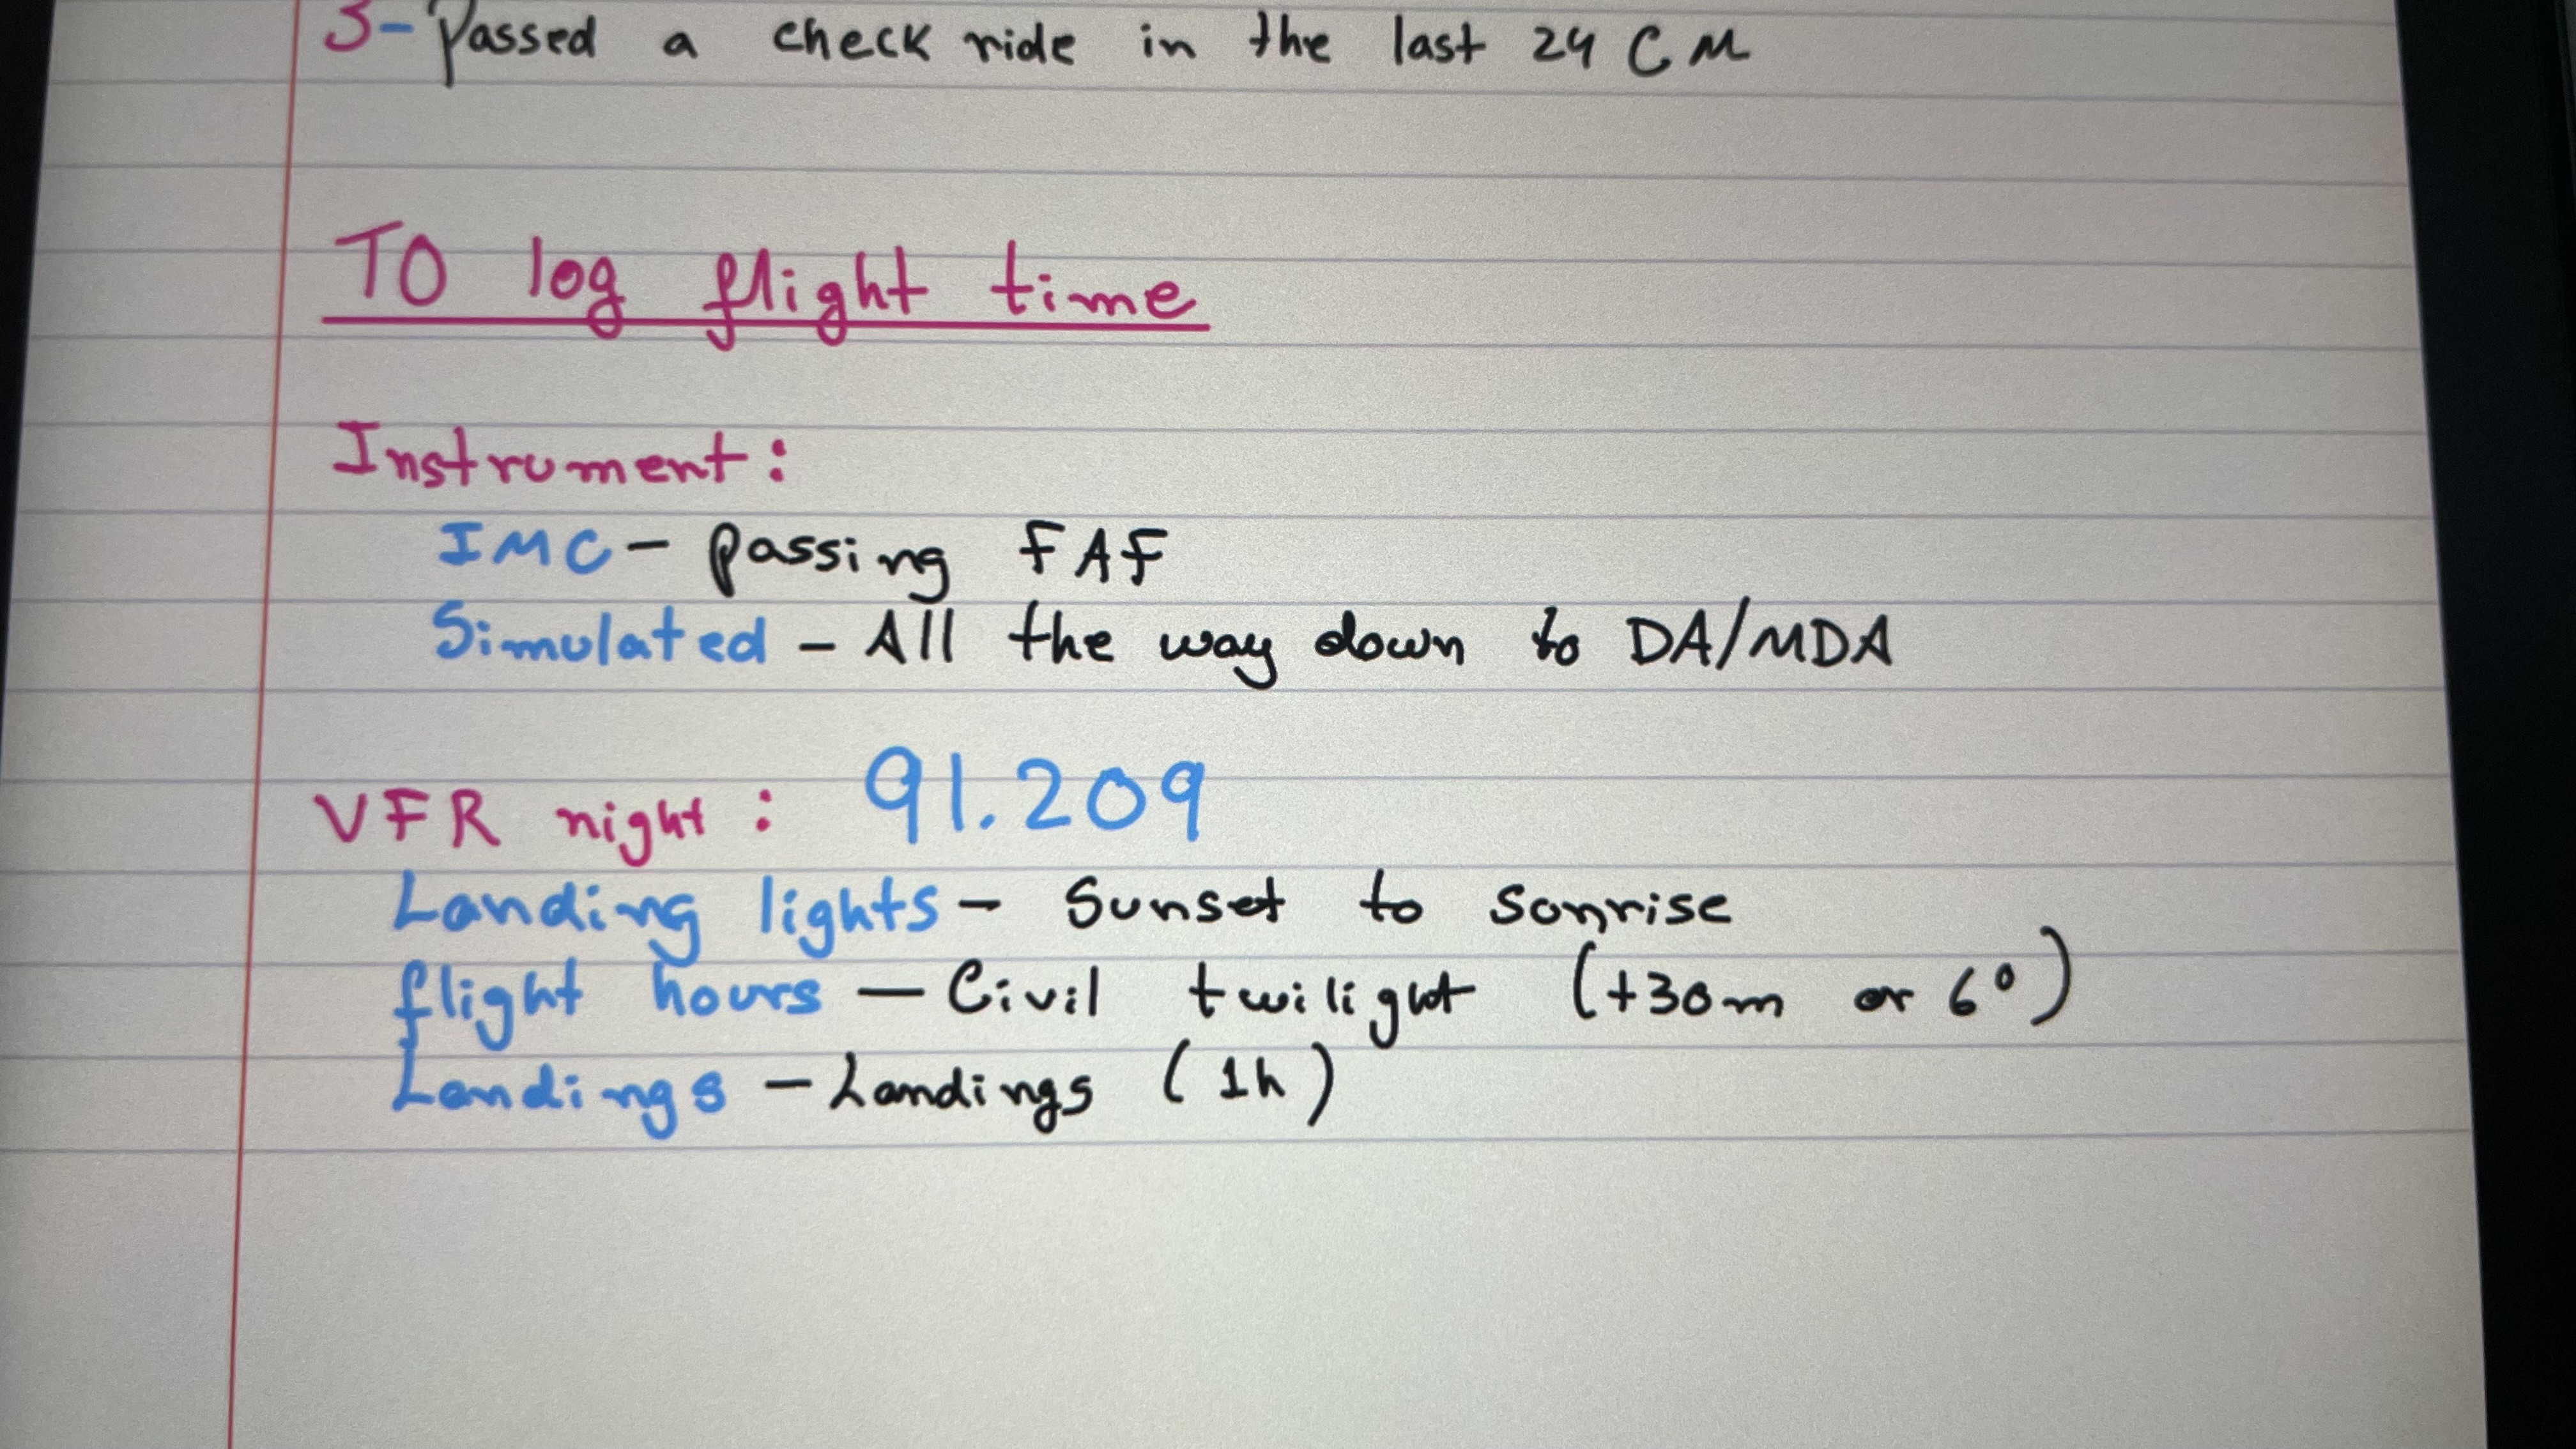 3- Passed a check ride in the last 24 CM
TO log flight time
Instrument:
IMC - passing FAF
Simulated - All the way down to DA/MDA
VFR night: 91.209
Landing lights - Sunset to sonrise
flight hours - Civil twilight (+30m or 6°)
Landings - Landings (1h)